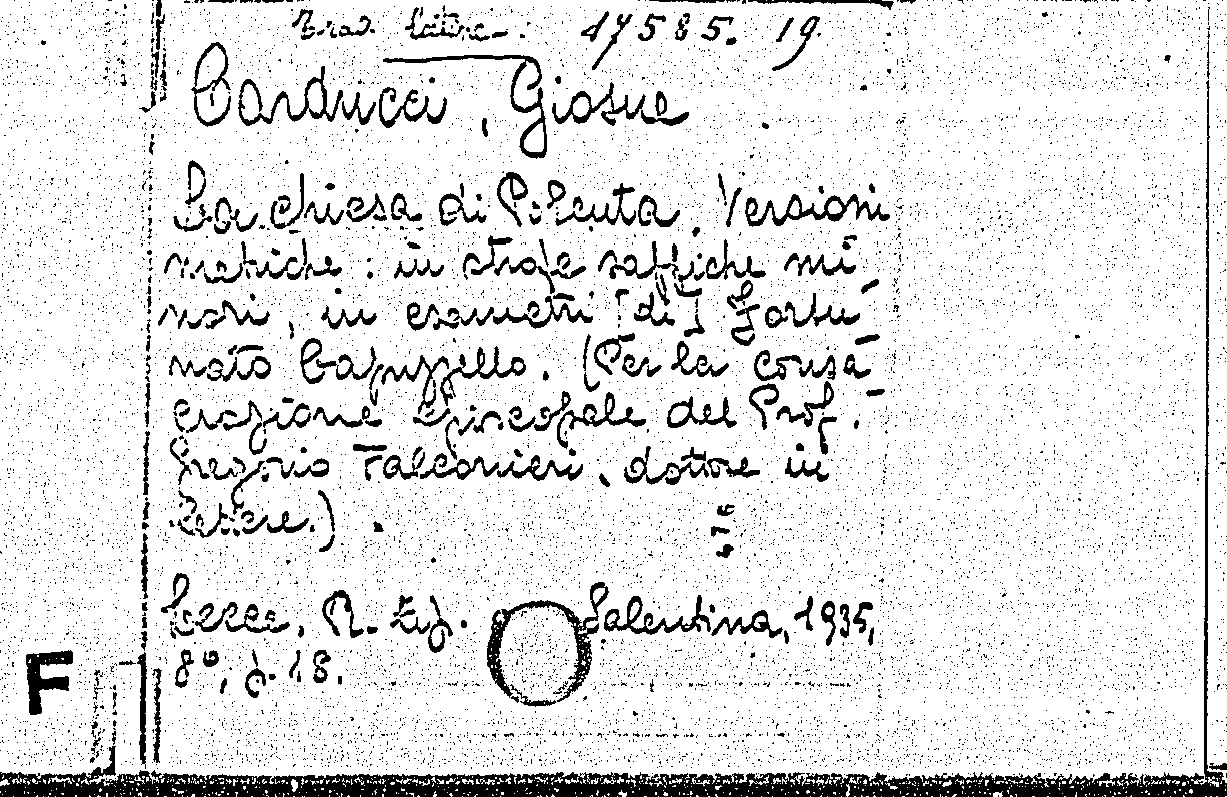 Trad. latina. 17585. 19.
Carducci, Giosue
La chiesa di Polenta. Versioni
metriche: in strofe saffiche mi-
nori, in esametri [di] Fortu-
nato Capuzzello. (Per la consa-
crazione episcopale del Prof.
Gregorio Falconieri, dottore in
lettere.).
Lecce, R. tip. Salentina, 1935,
8°, p. 18.
F